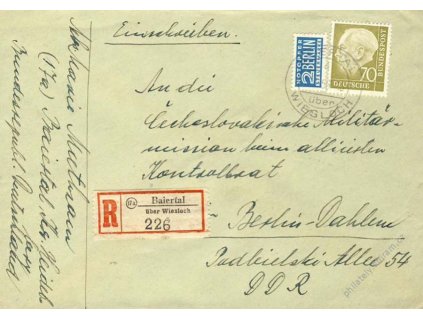 Einschreiben.
An die
Čechoslovakische Militär-
mission beim alliierten
Kontrollrat
Berlin-Dahlem
Podbielski Allee 54
DDR
NOTOPFER
2 BERLIN
STEUERMARKE
70
DEUTSCHE
BUNDESPOST
über
WIESLOCH
R
17a
Baiertal
über Wiesloch
226
(17a) Baiertal
Bundesrepublik
philately